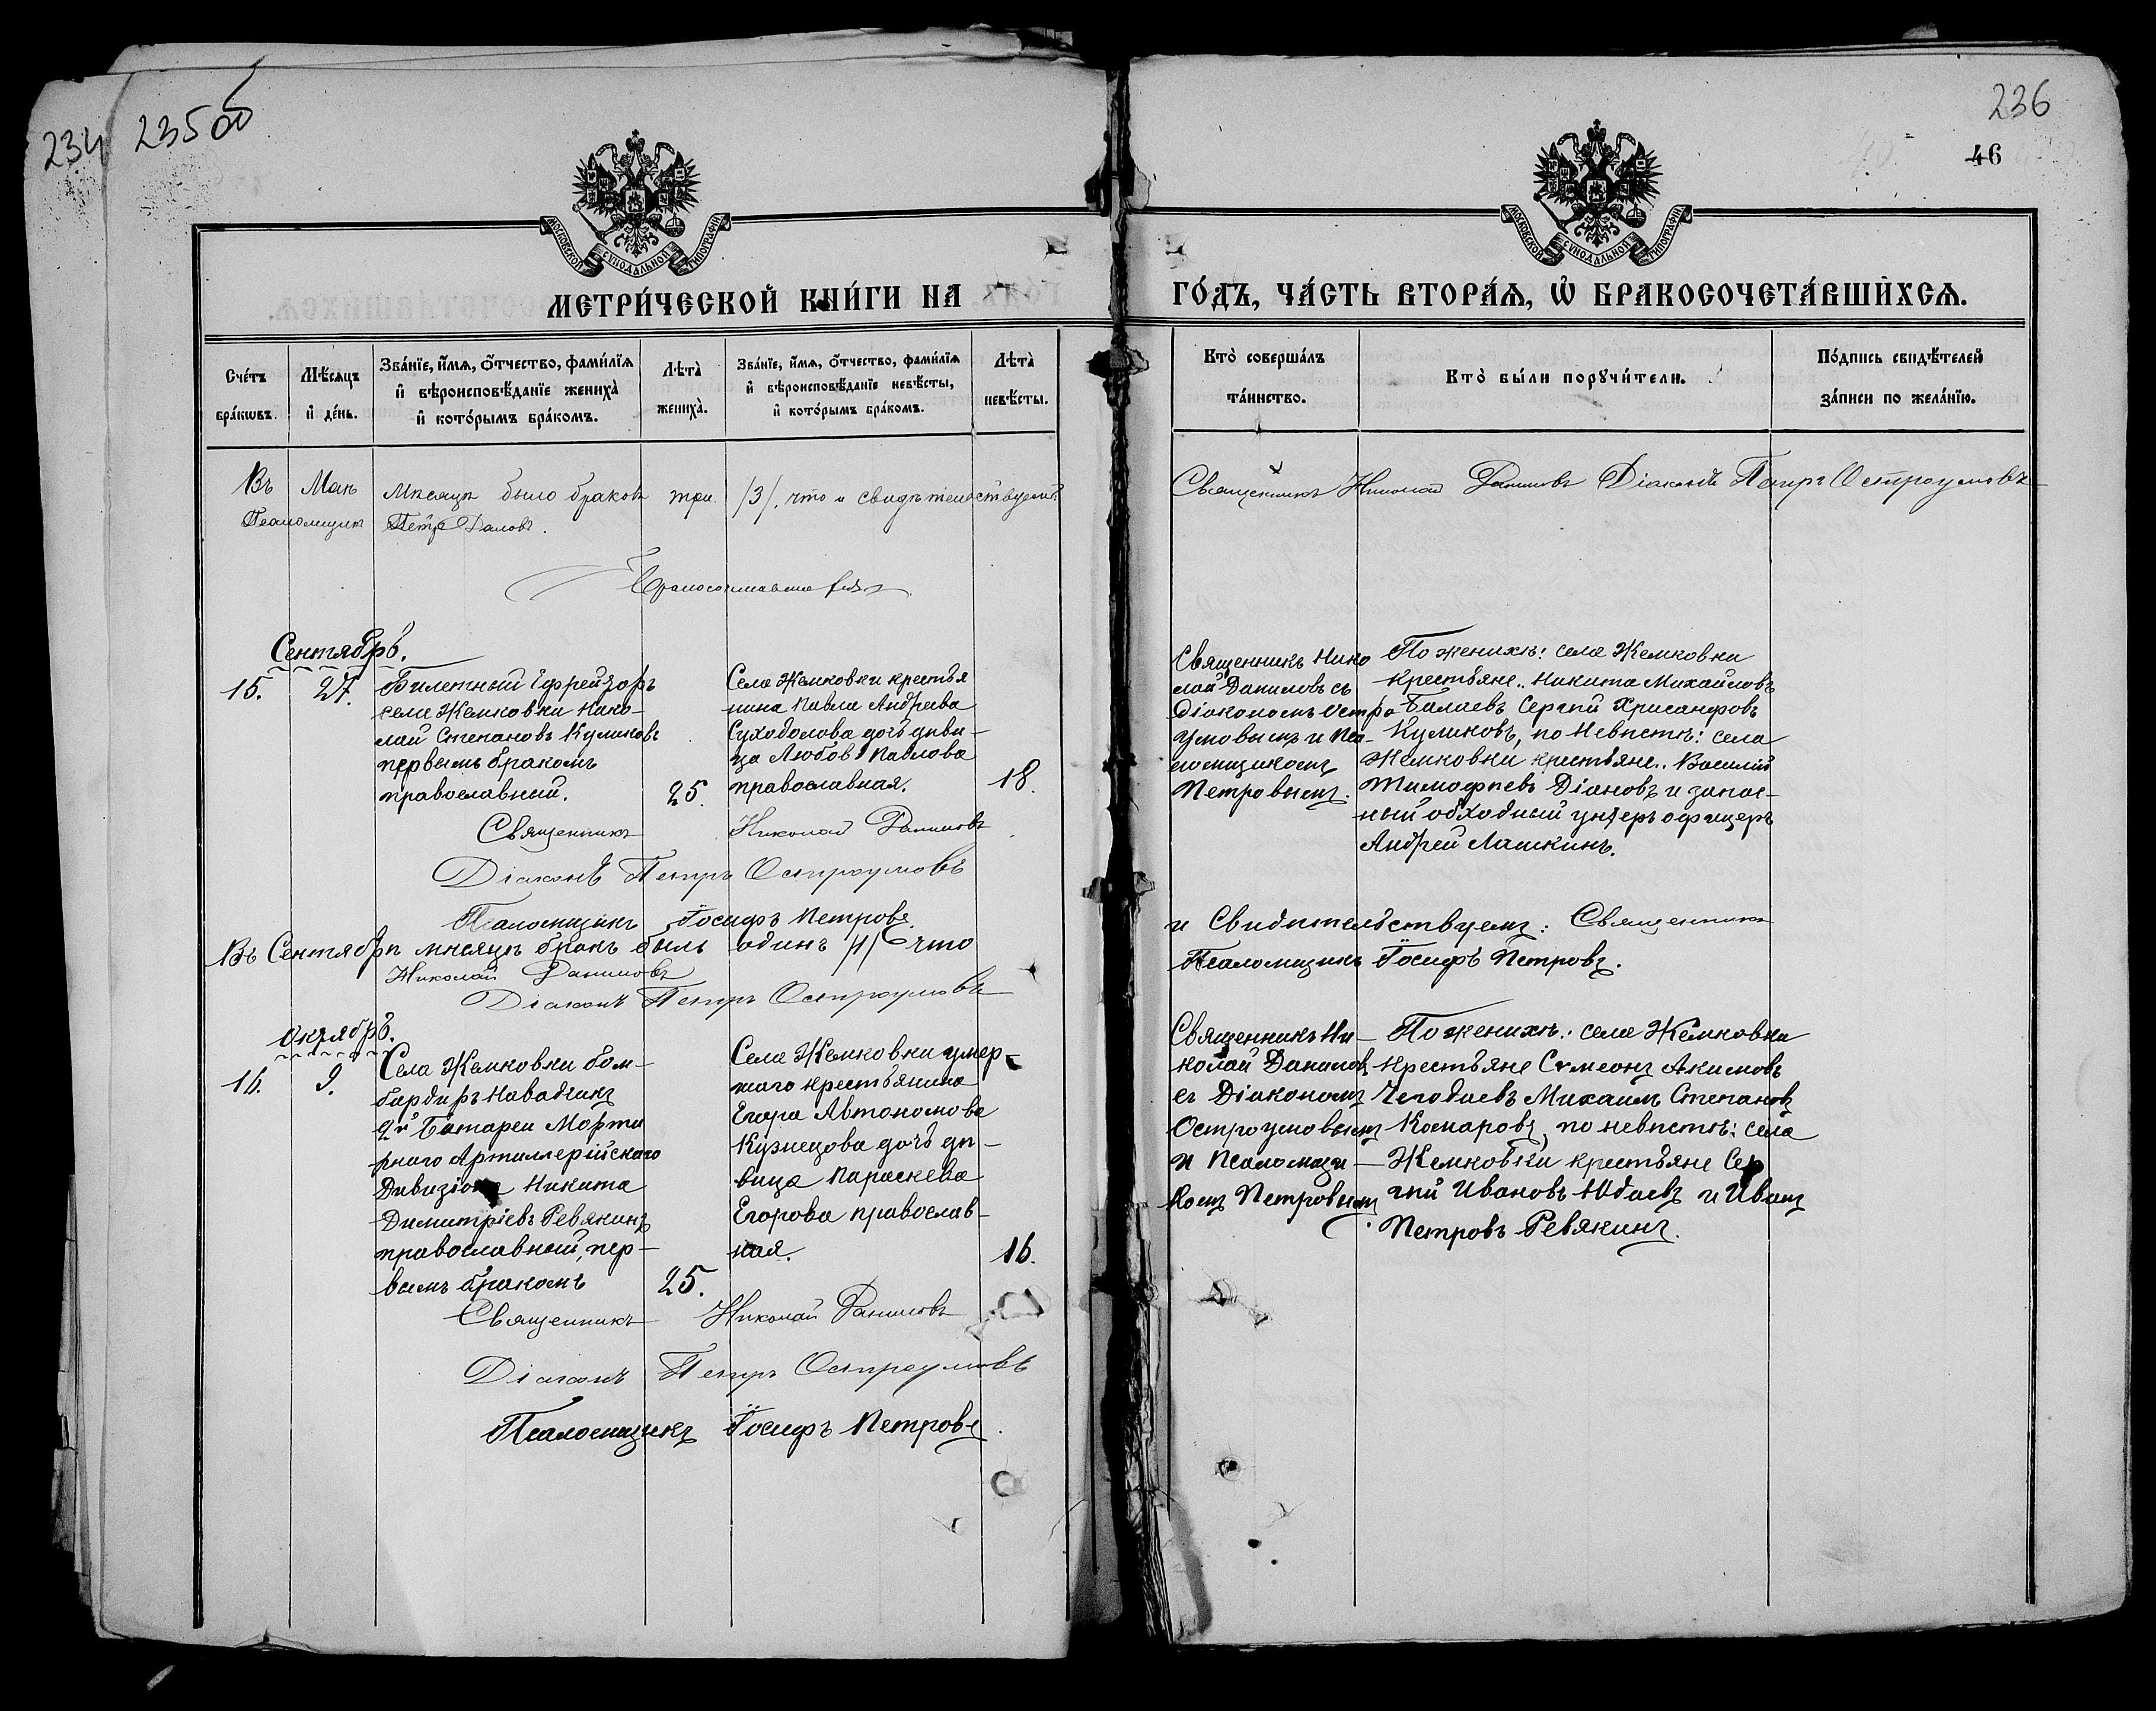 234
235об
236
46
МОСКОВСКОЙ СѴНОДАЛЬНОЙ ТИПОГРАФІИ
МОСКОВСКОЙ СѴНОДАЛЬНОЙ ТИПОГРАФІИ
МЕТРИ́ЧЕСКОЙ КНИ́ГИ НА
ГО́ДЪ, ЧА́СТЬ ВТОРА́Я, Ѡ҆ БРАКОСОЧЕТА́ВШИХСЯ.
Сче́тъ
бра́кѡвъ.
Мѣ́сяцъ
и҆ де́нь.
Зва́нїе, и҆́мя, ѻ҆́тчество, фами́лїя
и҆ вѣроисповѣ́данїе жениха̀
и҆ кото́рымъ бра́комъ.
Лѣта̀
жениха̀.
Зва́нїе, и҆́мя, ѻ҆́тчество, фами́лїя
и҆ вѣроисповѣ́данїе невѣ́сты,
и҆ кото́рымъ бра́комъ.
Лѣта̀
невѣ́сты.
Кто̀ соверша́лъ
та́инство.
Кто̀ бы́ли порꙋчи́тели.
По́дпись свидѣ́телей
за́писи по жела́нїю.
Въ Маѣ Мѣсяцѣ было браковъ три /3/. что и свидѣтельствуемъ:
Священникъ Николай Даниловъ Діаконъ Петръ Остроумовъ
Псаломщикъ Петръ
Сентябрь.
15. 27.
Билетный Ефрейторъ
села Жемковки Нико-
лай Степановъ Куликовъ
первымъ бракомъ
православный.
25.
Села Жемковки крестья
нина Павла Андреева
Суходолова дочь дѣви-
ца Любовь Павлова
православная.
18.
Священникъ Нико
лай Даниловъ съ
діакономъ Остро
умовымъ и Пса-
ломщикомъ
Петровымъ.
По женихѣ: села Жемковки
крестьяне.. Никита Михайловъ
Балаевъ Сергѣй Хрисанфовъ
Куликовъ, по Невѣстѣ: села
Жемковки крестьяне.. Василій
Тимофѣевъ Діановъ и запас-
ный обходный унтеръ офицеръ
Андрей Лашкинъ.
Священникъ Николай Даниловъ
Діаконъ Петръ Остроумовъ
Псаломщикъ Іосифъ Петровъ.
Въ Сентябрѣ мѣсяцѣ бракъ былъ одинъ /1/ что
и Свидѣтельствуемъ: Священникъ
Николай Даниловъ
Псаломщикъ Іосифъ Петровъ.
Діаконъ Петръ Остроумовъ
Октябрь.
16. 9.
Села Жемковки бом-
бардиръ Наводчикъ
2й Батареи Морти
рнаго Артиллерійскаго
Дивизіона Никита
Димитріевъ Ревякинъ
православный, пер-
вымъ бракомъ
25.
Села Жемковки умер-
шаго крестьянина
Егора Автономова
Кузнецова дочь дѣ-
вица Параскева
Егорова православ-
ная.
16.
Священникъ Ни-
колай Даниловъ
съ Діакономъ
Остроумовымъ
и Псаломщи-
комъ Петровымъ
По женихѣ: села Жемковки
крестьяне Симеонъ Акимовъ
Чегодаевъ Михаилъ Степановъ
Комаровъ, по невѣстѣ: села
Жемковки крестьяне Сер
гѣй Ивановъ Юдаевъ и Иванъ
Петровъ Ревякинъ.
Священникъ Николай Даниловъ
Діаконъ Петръ Остроумовъ
Псаломщикъ Іосифъ Петровъ.